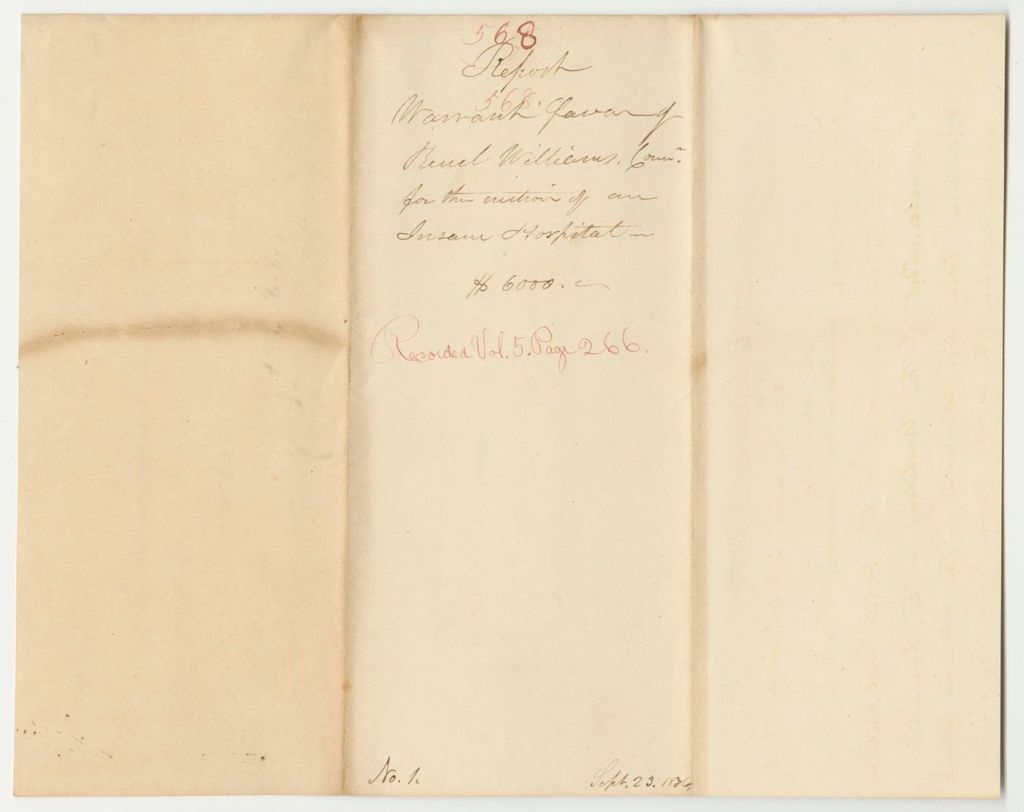 568
Report
568
Warrant favor of
Reuel Williams. Comr.
for the erection of an
Insane Hospital
$ 6000.
Recorded Vol. 5. Page 266.
No. 1.
Sept. 23. 1836